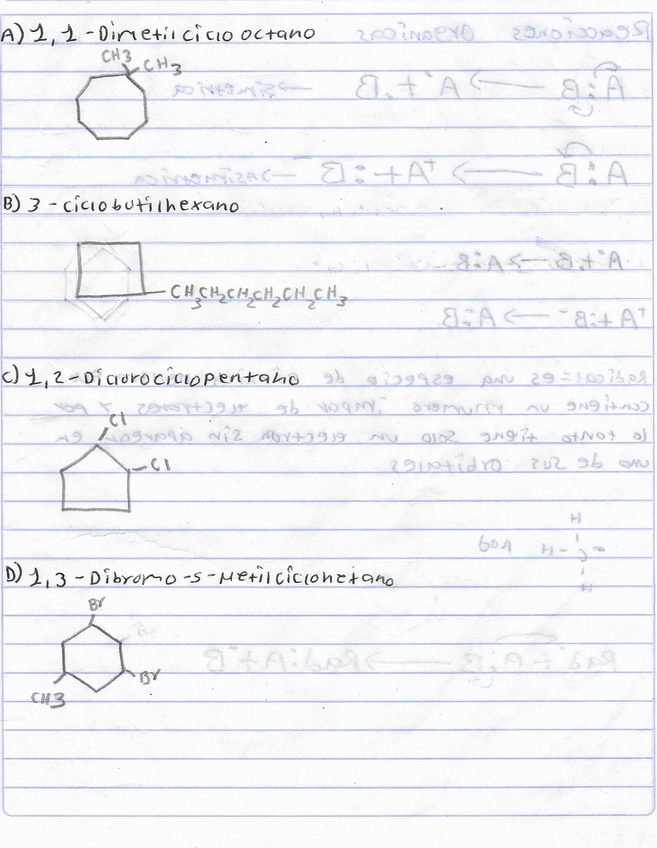 A) 1,1-Dimetilciclo octano
CH3
CH3
B) 3-ciclobutilhexano
CH3CH2CH2CH2CH2CH3
C) 1,2-Diclorociclopentano
Cl
-Cl
D) 1,3-Dibromo-5-Metilciclohexano
Br
Br
CH3